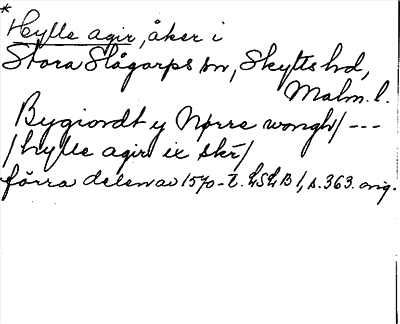 *
Hylle agir, åker i
Stora Slågarps sn, Skytts hd,
Malm. l.
Bygiordt y Nørre wongh/ ---
/ hylle agir ix skr̄/
förra delen av 1570-t. LSLB 1, s. 363. orig.